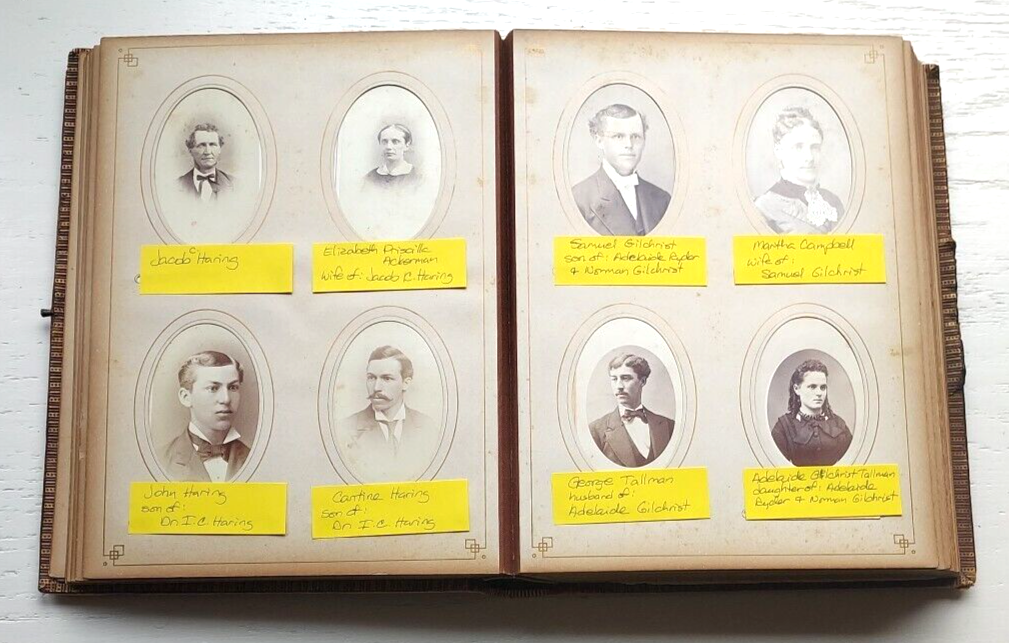 Jacob C Haring
Elizabeth Priscilla
Ackerman
wife of: Jacob C. Haring
Samuel Gilchrist
son of: Adelaide Ryder
& Norman Gilchrist
Martha Campbell
wife of:
Samuel Gilchrist
John Haring
son of:
Dr. I.C. Haring
Cantine Haring
son of:
Dr. I.C. Haring
George Tallman
husband of:
Adelaide Gilchrist
Adelaide Gilchrist Tallman
daughter of: Adelaide
Ryder & Norman Gilchrist